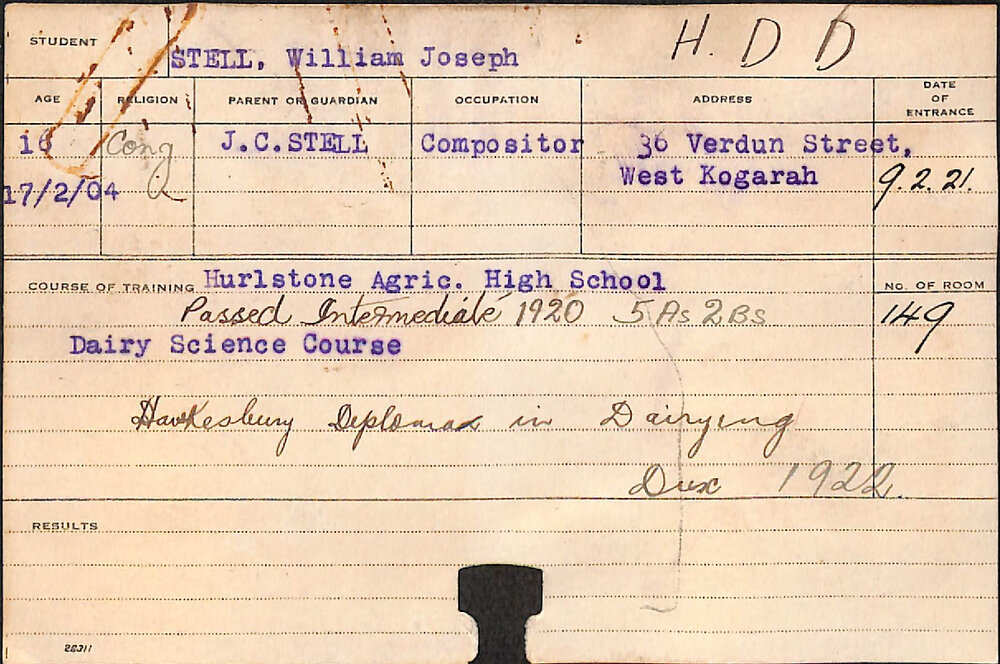 STUDENT STELL, William Joseph H. D D
AGE RELIGION PARENT OR GUARDIAN OCCUPATION ADDRESS DATE OF ENTRANCE
16 Cong J.C.STELL Compositor 36 Verdun Street,
17/2/04 West Kogarah 9.2.21.
COURSE OF TRAINING Hurlstone Agric. High School No. OF ROOM
Passed Intermediate 1920 5 As 2 Bs 149
Dairy Science Course
Hawkesbury Diploma in Dairying
Dux 1922.
RESULTS
26311